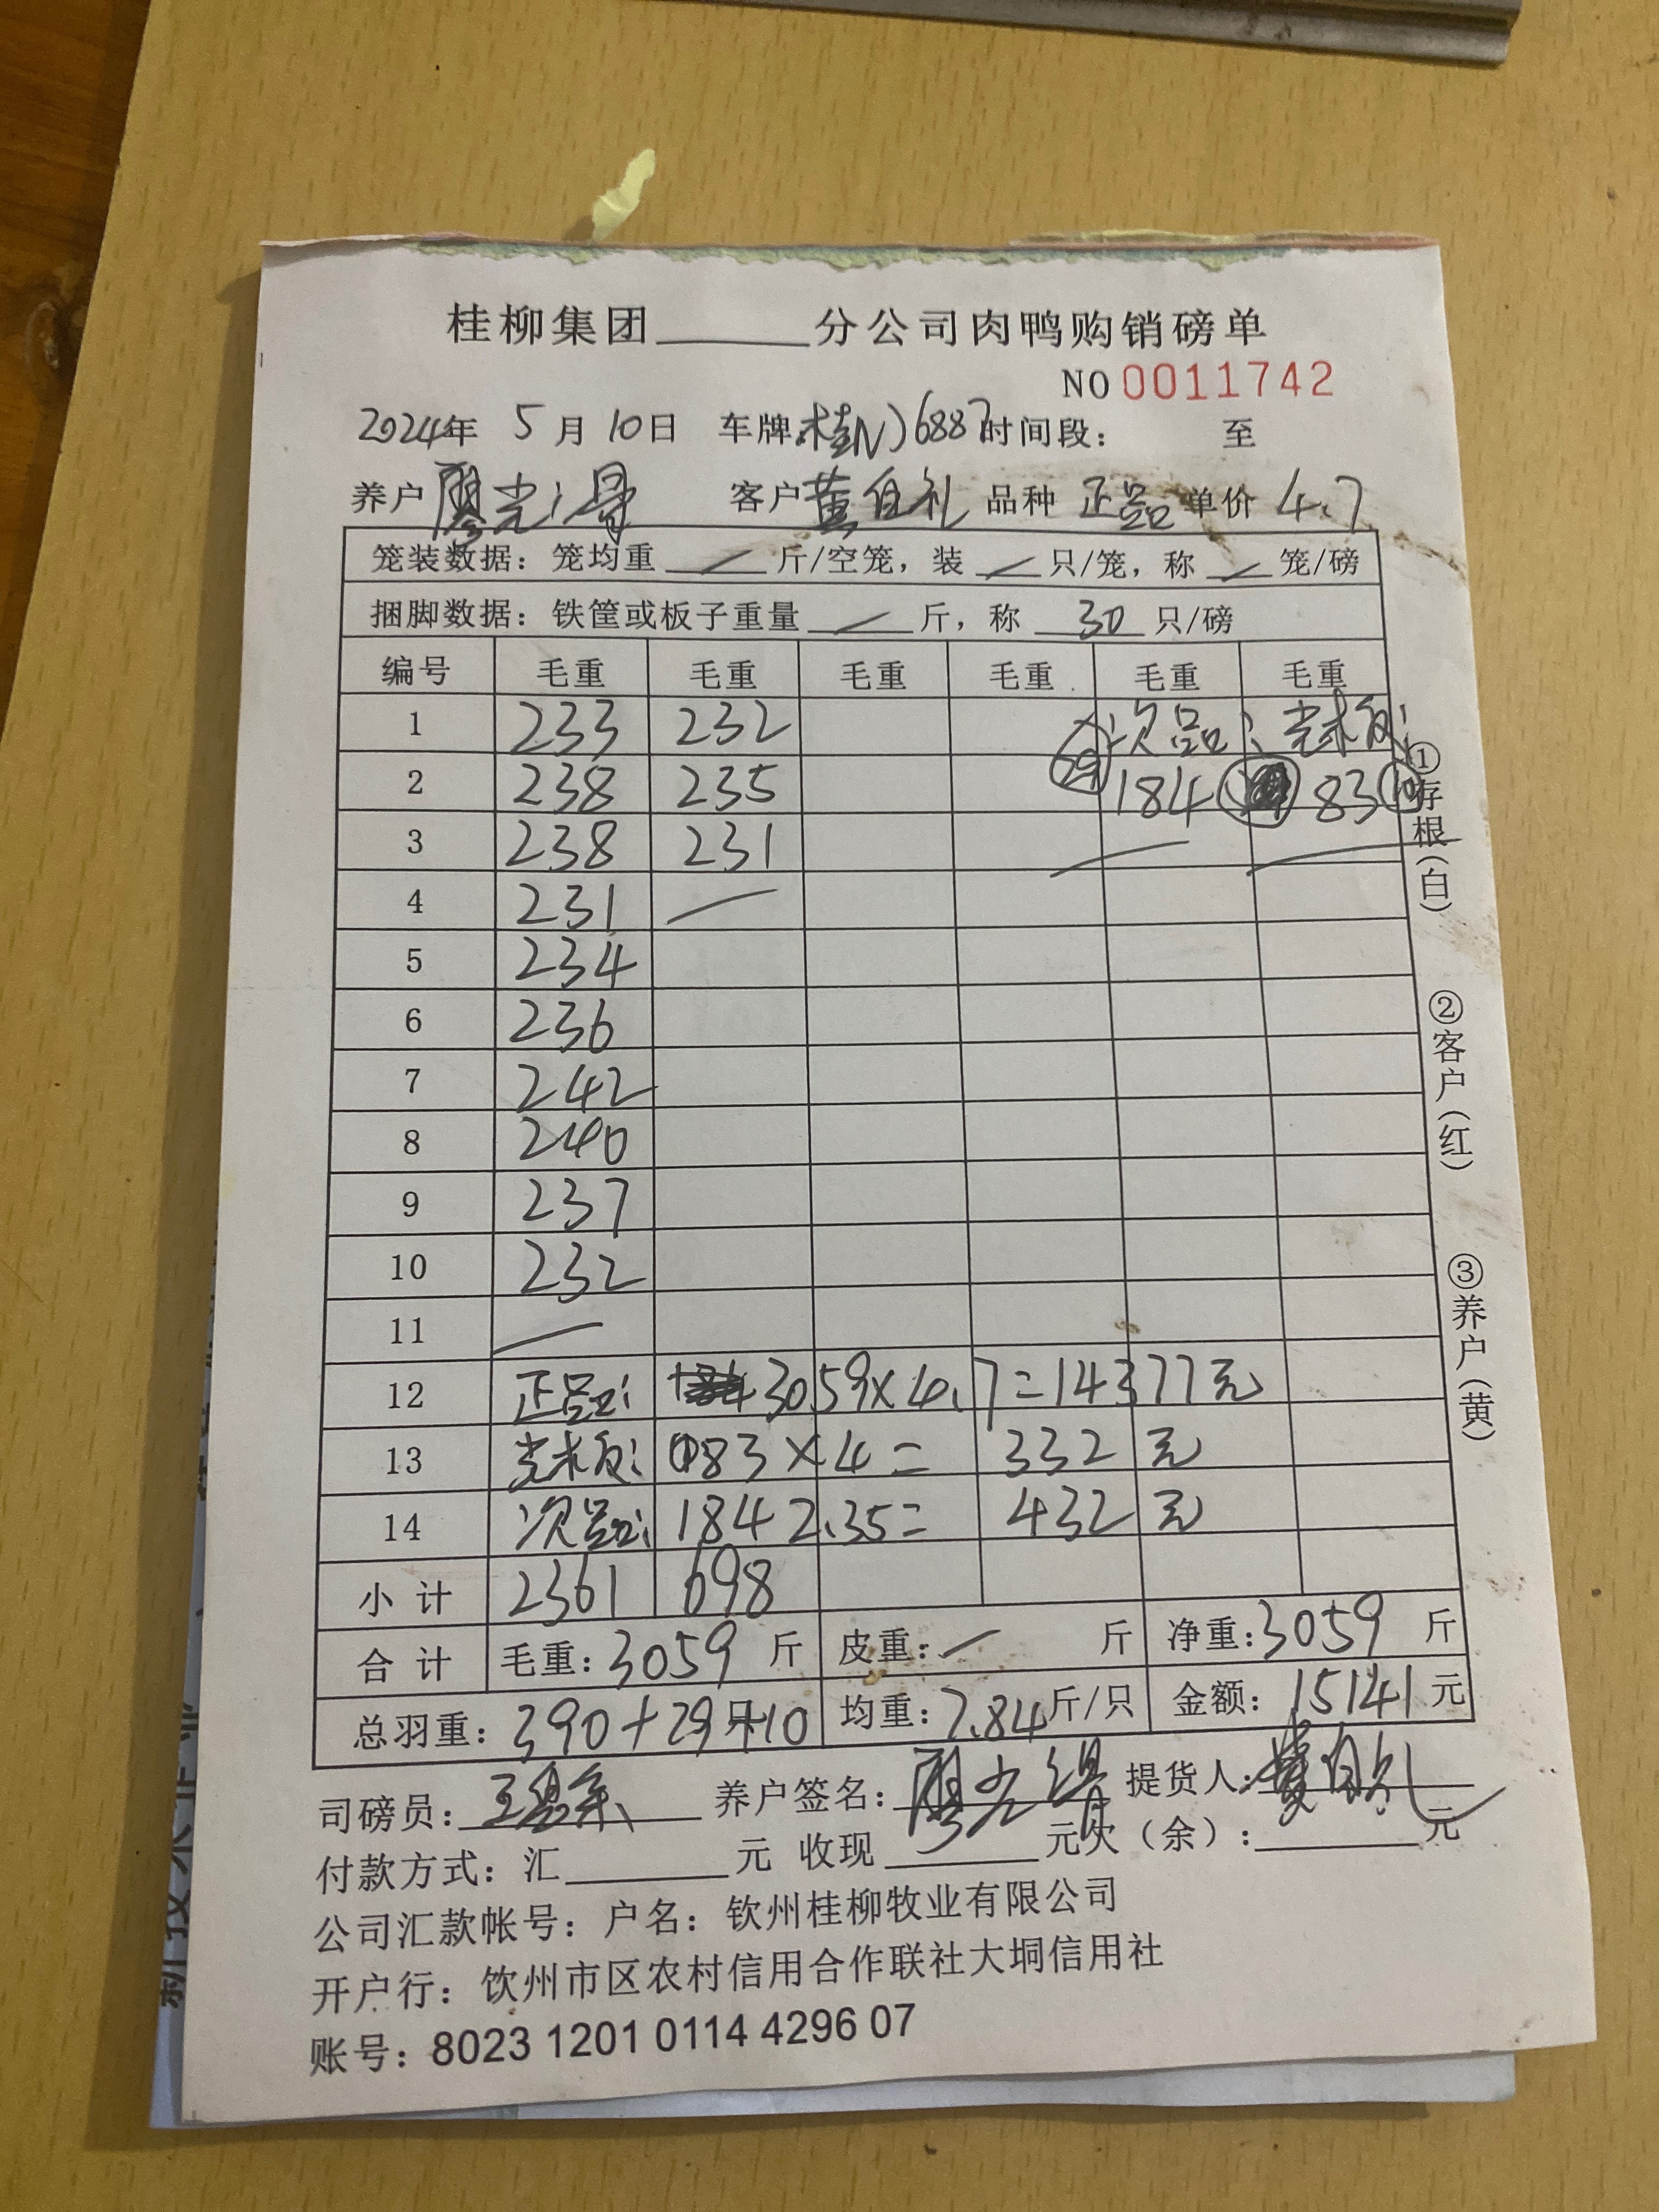 桂柳集团______分公司肉鸭购销磅单
NO 0011742
2024年 5月10日 车牌 桂N 6887 时间段： 至
养户 廖光 客户 黄自礼 品种 正品 单价 4.7
笼装数据：笼均重 — 斤/空笼，装 — 只/笼，称 — 笼/磅
捆脚数据：铁筐或板子重量 — 斤，称 30 只/磅
编号 毛重 毛重 毛重 毛重 毛重 毛重
1 233 232 次品： 光板：
2 238 235 29 184 83 10
3 238 231 — —
4 231 —
5 234
6 236
7 242
8 240
9 237
10 232
11 —
12 正品： 3059×4.7=14377元
13 光板： 83×4= 332元
14 次品： 184 2.35= 432元
小计 2361 698
合计 毛重：3059斤 皮重：— 斤 净重：3059斤
总羽重：390+29+10 均重：7.84斤/只 金额：15141元
司磅员： 养户签名：廖光 提货人：黄自礼
付款方式：汇______元 收现______元欠（余）：______元
公司汇款帐号：户名：钦州桂柳牧业有限公司
开户行：钦州市区农村信用合作联社大垌信用社
账号：8023 1201 0114 4296 07
①存根（白）
②客户（红）
③养户（黄）